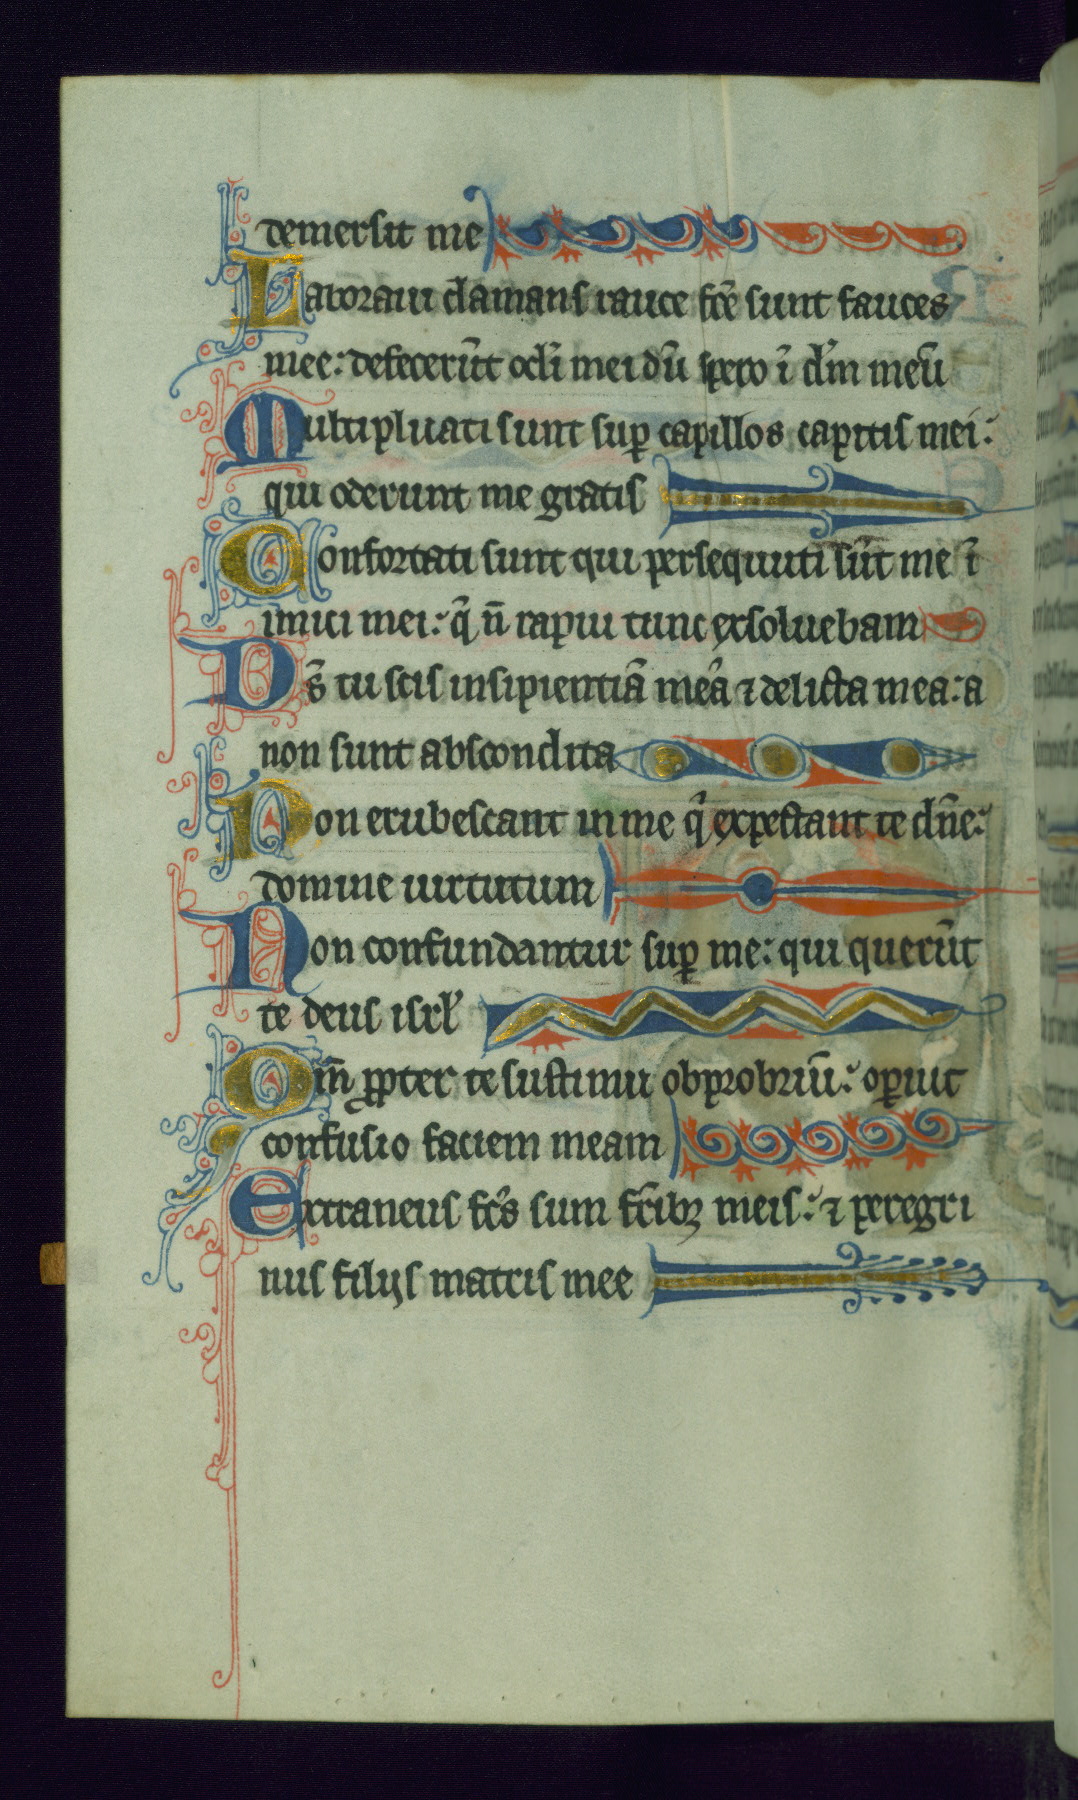 demersit me
Laboraui clamans rauce fc̄e sunt fauces
mee: defecerūt ocli̅ mei dū spero ī dm̄ meū
Multipluati sunt suꝑ capillos capitis mei:
qui oderunt me gratis
Confortati sunt qui persequuti sūt me ī
imici mei: q̄ n̄ rapui tunc exsoluebam
Ds̄ tu scis insipientiā meā ⁊ delicta mea: a
non sunt abscondita
Non erubescant in me qͥ expectant te dn̄e:
domine uirtutum
Non confundantur suꝑ me: qui querūt
te deus isrl̓
Qm̄ ꝓpter te sustinui obprobriū: oꝑuit
confusio faciem meam
Extraneus fc̄s sum fr̄ibꝫ meis: ⁊ peregri
nus filijs matris mee